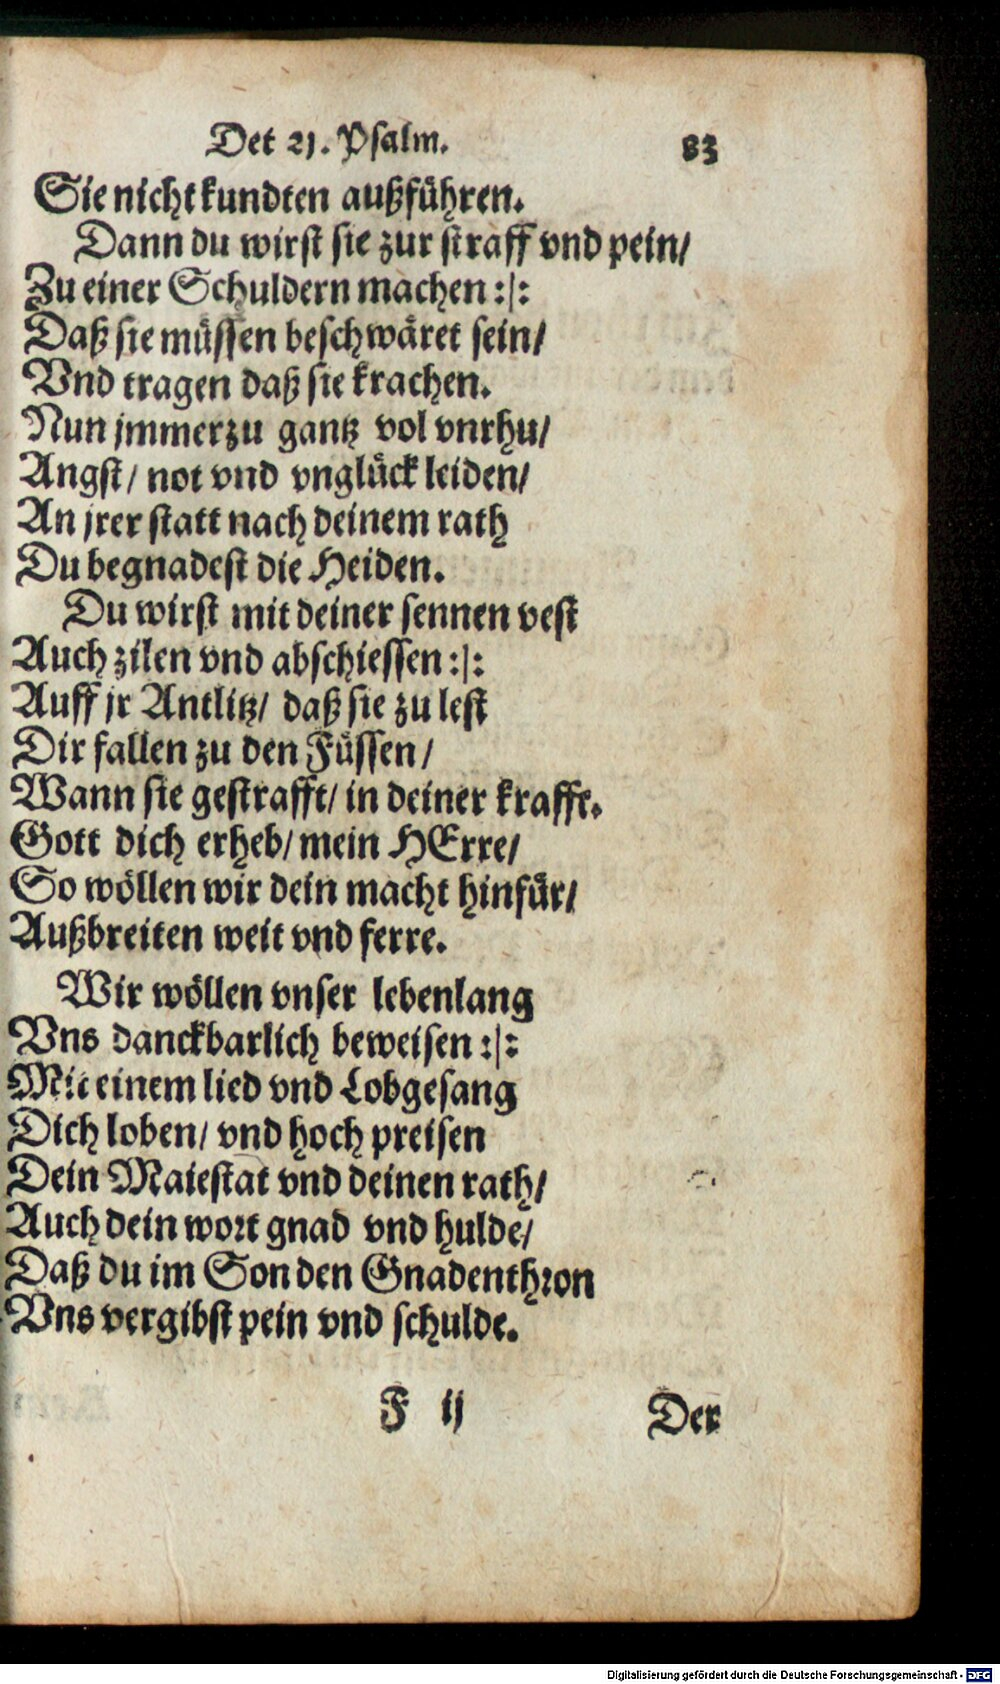 Det 21. Psalm. 83
Sie nicht kundten außführen.
Dann du wirst sie zur straff vnd pein/
Zu einer Schuldern machen :|:
Daß sie müssen beschwäret sein/
Vnd tragen daß sie krachen.
Nun jmmerzu gantz vol vnrhu/
Angst/ not vnd vnglück leiden/
An jrer statt nach deinem rath
Du begnadest die Heiden.
Du wirst mit deiner sennen vest
Auch zilen vnd abschiessen :|:
Auff jr Antlitz/ daß sie zu lest
Dir fallen zu den Füssen/
Wann sie gestrafft/ in deiner krafft.
Gott dich erheb/ mein HErre/
So wöllen wir dein macht hinfür/
Außbreiten weit vnd ferre.
Wir wöllen vnser lebenlang
Vns danckbarlich beweisen :|:
Mit einem lied vnd Lobgesang
Dich loben/ vnd hoch preisen
Dein Maiestat vnd deinen rath/
Auch dein wort gnad vnd hulde/
Daß du im Son den Gnadenthron
Vns vergibst pein vnd schulde.
F ij Der
Digitalisierung gefördert durch die Deutsche Forschungsgemeinschaft - DFG